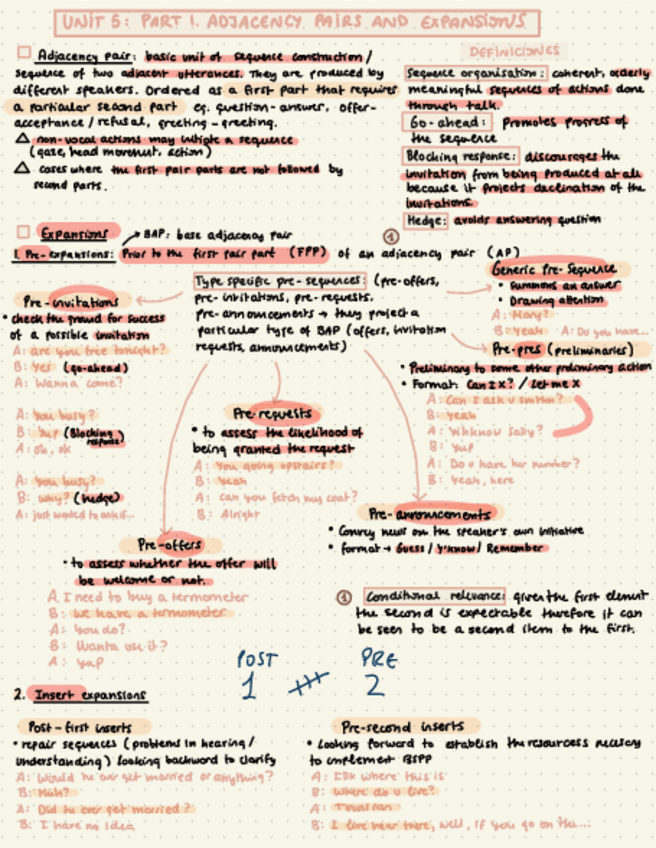 UNIT 5: PART 1. ADJACENCY PAIRS AND EXPANSIONS
Adjacency pair: basic unit of sequence construction /
sequence of two adjacent utterances. They are produced by
different speakers. Ordered as a first part that requires
a particular second part eg. question-answer, offer-
acceptance / refusal, greeting - greeting.
△ non-vocal actions may initiate a sequence
(gaze, head movement, action)
△ cases where the first pair parts are not followed by
second parts.
DEFINICIONES
Sequence organisation: coherent, orderly
meaningful sequences of actions done
through talk.
Go-ahead: promotes progress of
the sequence
Blocking response: discourages the
invitation from being produced at all
because it projects declination of the
invitations.
Hedge: avoids answering question
Expansions → BAP: base adjacency pair
1. Pre-expansions: Prior to the first pair part (FPP) of an adjacency pair (AP)
1
Type specific pre-sequences: (pre-offers,
pre-invitations, pre-requests.
pre-announcements → they project a
particular type of BAP (offers, invitation
requests, announcements)
Pre-invitations
• check the ground for success
of a possible invitation
A: are you free tonight?
B: Yes (go-ahead)
A: Wanna come?
A: You busy?
B: Yes (Blocking response)
A: Oh, ok
A: You busy?
B: why? (hedge)
A: just wanted to ask if...
Generic Pre-Sequence
• Summons an answer
• Drawing attention
A: Mary?
B: Yeah A: Do you have...
Pre-pres (preliminaries)
• Preliminary to some other preliminary action
• Format: Can I X? / Let me X
A: Can I ask u smthn?
B: Yeah
A: Yikknow Sally?
B: Yup
A: Do u have her number?
B: Yeah, here
Pre-requests
• to assess the likelihood of
being granted the request
A: You going upstairs?
B: Yeah
A: can you fetch my coat?
B: Alright
Pre-announcements
• Convey news on the speaker's own initiative
• format → Guess / Y'know / Remember
Pre-offers
• to assess whether the offer will
be welcome or not.
A. I need to buy a termometer
B: We have a termometer
A: You do?
B: Wanta use it?
A: yap
1 Conditional relevance: given the first element
the second is expectable therefore it can
be seen to be a second item to the first.
POST PRE
1 2
2. Insert expansions
Post-first inserts
• repair sequences (problems in hearing /
understanding) looking backward to clarify
A: Would he ever get married or anything?
B: Huh?
A: Did he ever get married?
B: I have no idea
Pre-second inserts
• Looking forward to establish the resources necesary
to implement BSPP
A: IDK where this is
B: Where do u live?
A:
B: I live near there, well, if you go on the...